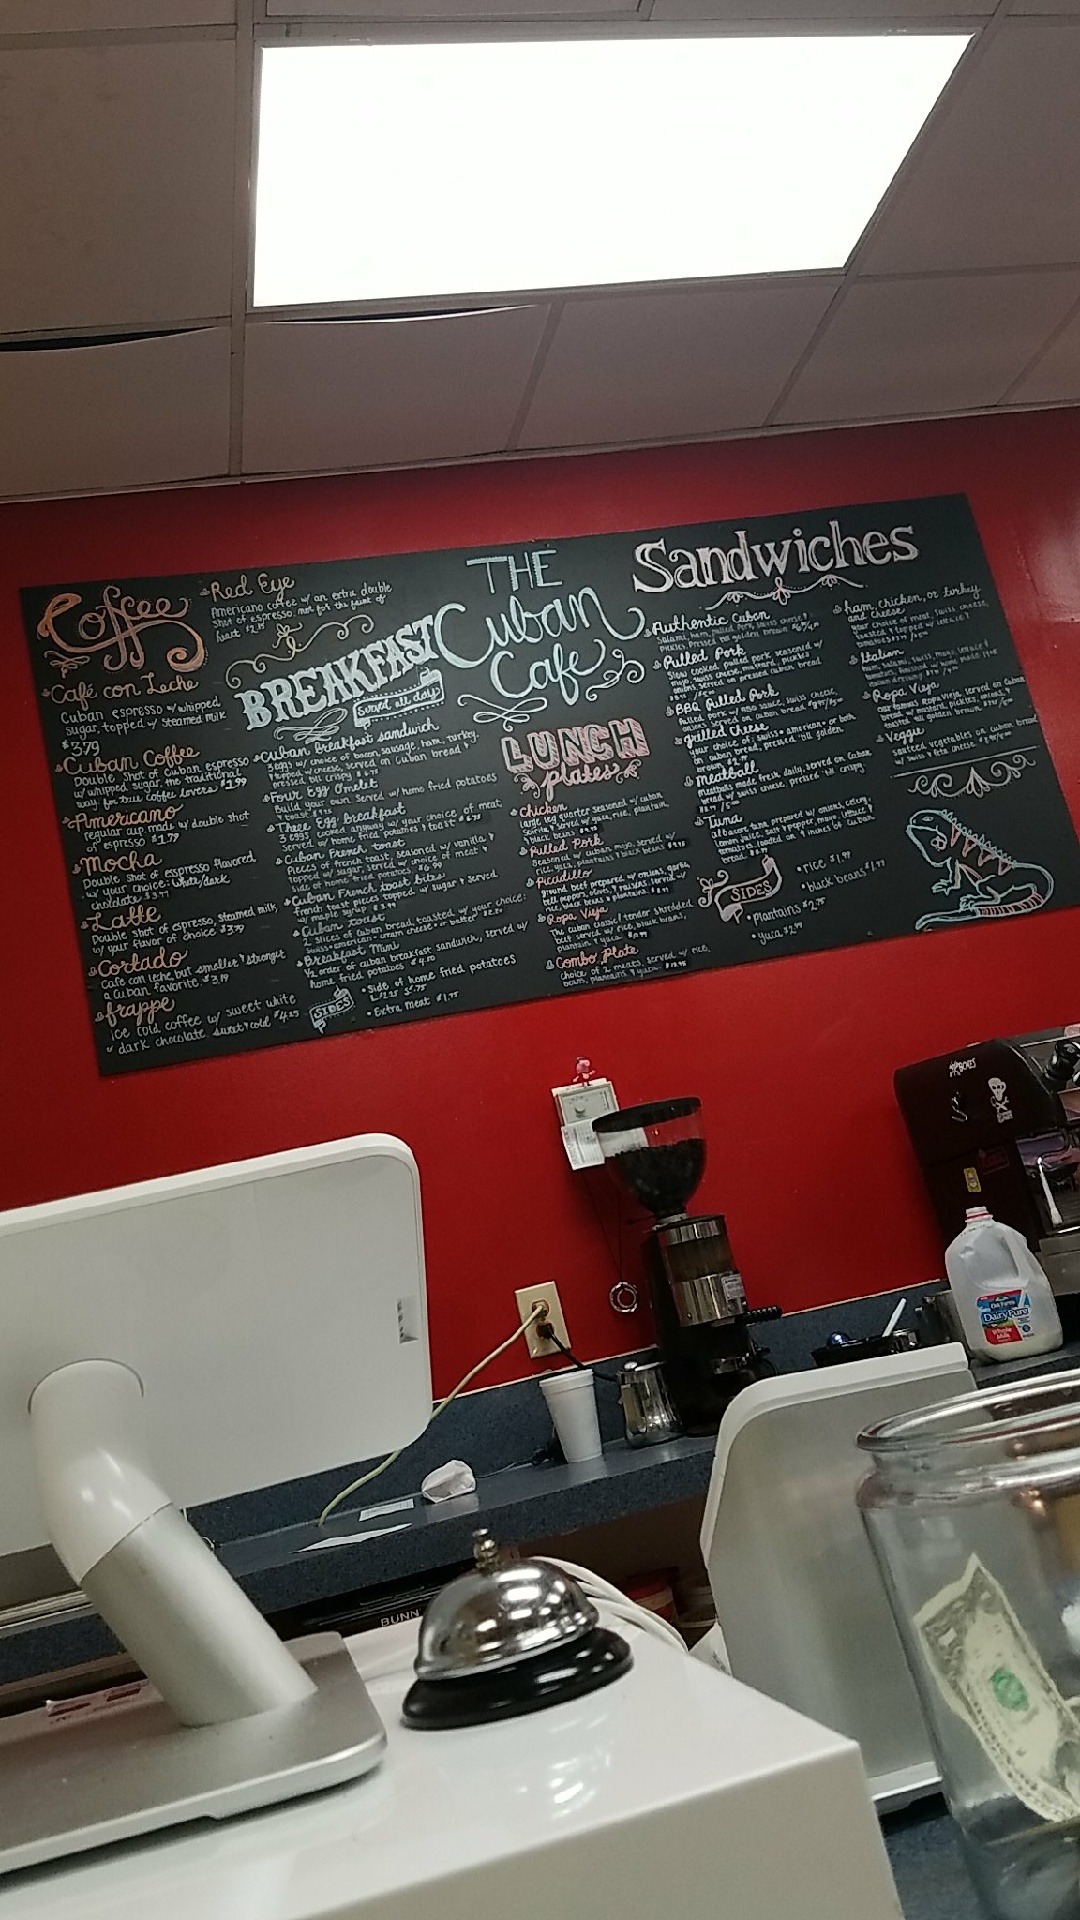 Coffee
Red Eye
Americano coffee w/ an extra double
shot of espresso, not for the faint of
heart
Café con Leche
Cuban espresso w/ whipped
sugar, topped w/ steamed milk
$3.79
Cuban Coffee
double shot of Cuban espresso
w/ whipped sugar, the traditional
way for true coffee lovers $1.99
Americano
regular cup made w/ double shot
of espresso $1.79
Mocha
Double shot of espresso flavored
w/ your choice: white/dark
chocolate
Latte
Double shot of espresso, steamed milk,
w/ your flavor of choice $3.79
Cortado
Cafe con leche but smaller & stronger
a Cuban favorite $3.19
frappe
ice cold coffee w/ sweet white
or dark chocolate. sweet & cold
THE
Cuban
Cafe
BREAKFAST
Served all day
Cuban breakfast sandwich
eggs w/ choice of bacon, sausage, ham, turkey,
topped w/ cheese, served on Cuban bread &
pressed till crispy
Four Egg Omelit
build your own served w/ home fried potatoes
& toast
Three Egg breakfast
3 eggs cooked anyway w/ your choice of meat
served w/ home fried potatoes & toast
Cuban French toast
Pieces of french toast, seasoned w/ vanilla &
topped w/ sugar, served w/ choice of meat &
side of home fried potatoes $6.99
Cuban French toast bites
french toast pieces topped w/ sugar & served
w/ maple syrup
Cuban toast
2 slices of Cuban bread toasted w/ your choice:
swiss • american • cream cheese • or butter
Breakfast Mini
1/2 order of cuban breakfast sandwich, served w/
home fried potatoes
SIDES
• Side of home fried potatoes
• Extra meat $1.75
LUNCH
plates
Chicken
large leg quarter seasoned w/ cuban
served w/ yuca, rice, plantain,
& black beans
Pulled Pork
seasoned w/ cuban mojo, served w/
rice, yuca, plantains & black beans
Picadillo
ground beef prepared w/ onions, garlic,
bell pepper, olives & raisins, served w/
rice, black beans & plantain
Ropa Vieja
The cuban classic! tender shredded
beef served w/ rice, black beans,
plantain & yuca
Combo Plate
choice of 2 meats, served w/ rice,
beans, plantains & yuca
Sandwiches
Authentic Cuban
Salami, ham, pulled pork, swiss cheese &
pickles pressed to golden brown
Pulled Pork
Slow cooked pulled pork seasoned w/
mojo, swiss cheese, mustard, pickles
onions served on pressed cuban bread
BBQ Pulled Pork
Pulled pork w/ BBQ sauce, swiss cheese,
onions, served on cuban bread
grilled cheese
your choice of: swiss • american • or both
on cuban bread, pressed 'till golden
brown
Meatball
meatballs made fresh daily, served on Cuban
bread w/ swiss cheese, pressed till crispy
Tuna
albacore tuna prepared w/ onions, celery,
lemon juice, salt & pepper, mayo, lettuce
tomatoes loaded on inches of Cuban
bread
ham, chicken, or turkey
and cheese
your choice of meat, swiss cheese,
toasted & topped w/ lettuce &
Italian
ham, salami, swiss, mayo, lettuce &
Ropa Vieja
our famous Ropa Vieja, served on Cuban
bread w/ mustard, pickles, onions &
toasted till golden brown
Veggie
sauteed vegetables on cuban bread
w/ swiss & feta cheese
SIDES
• rice $1.99
• black beans $1.77
• Plantains $2.75
• yuca $2.99
DairyPure
Whole
Milk
BUNN